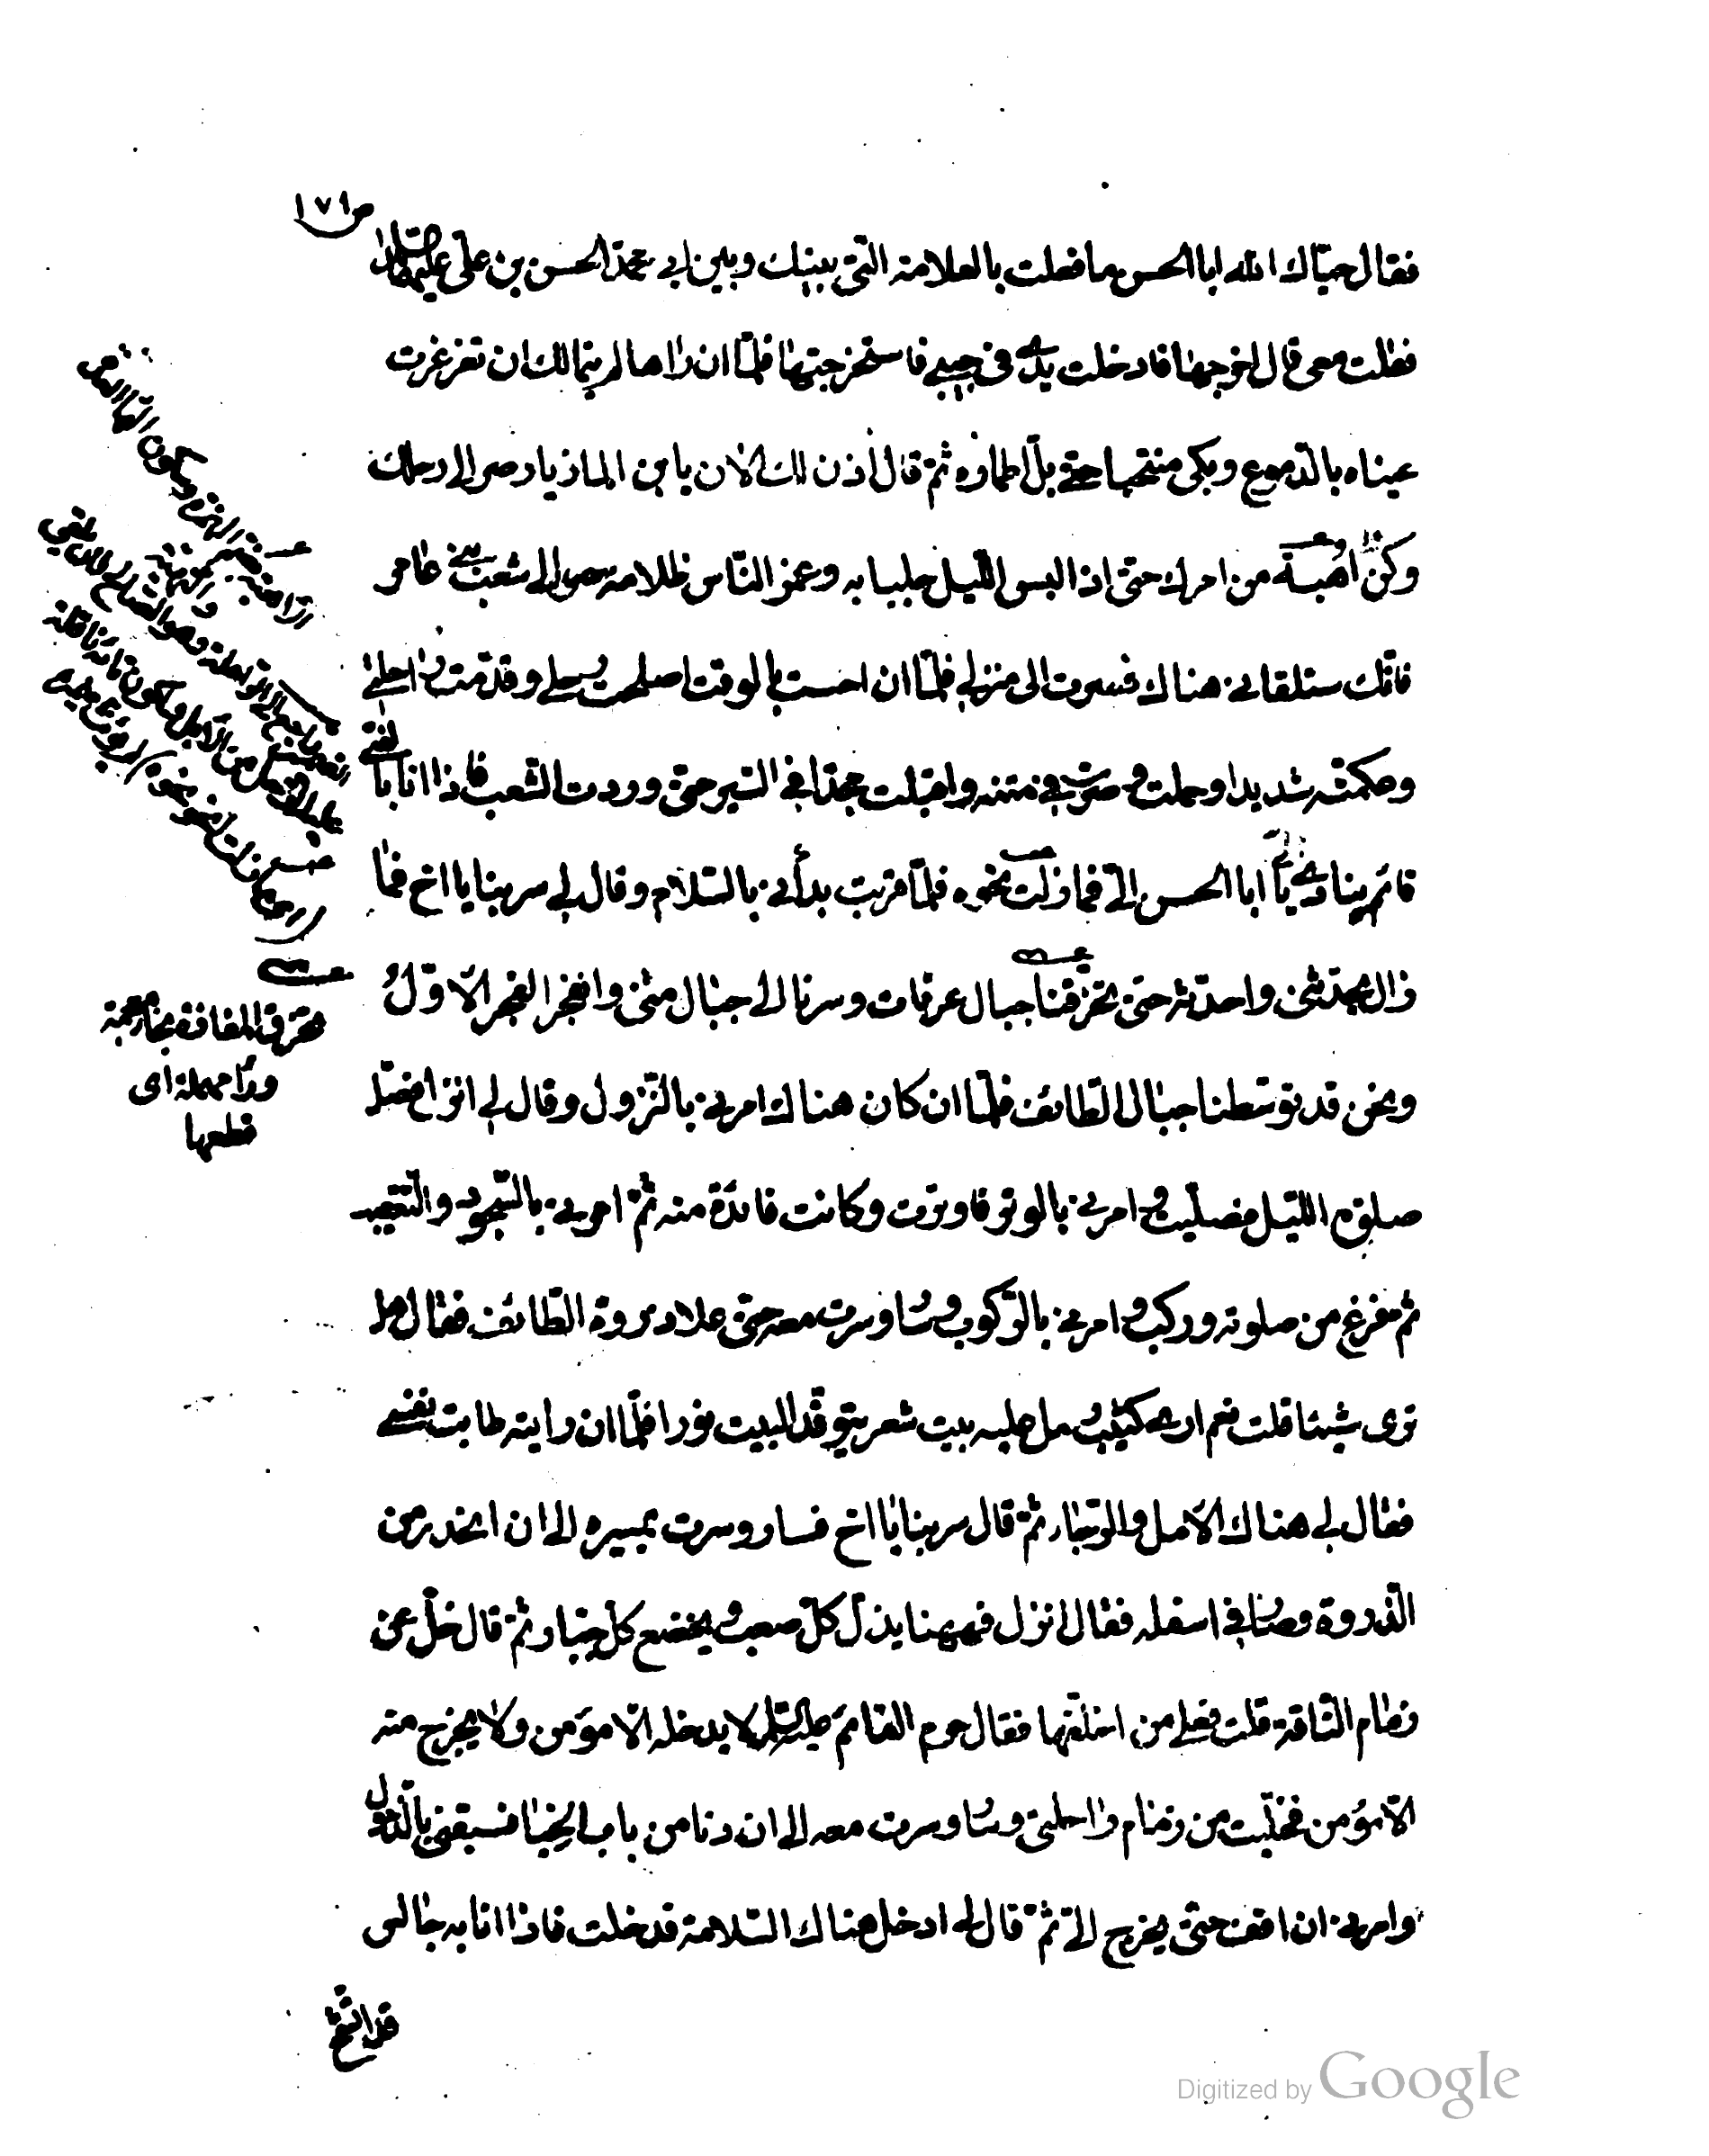 ص ١٧١
فقال حيّاك الله ابا الحسن ما فعلت بالعلامة التّي بينك وبين ابي محمّد الحسن بن علىّ عليهما
فقلت معى قال اخرجها فادخلت يدى فى جيبى فاستخرجتها فلمّا ان راها لم يتمالك ان تغرغرت
عيناه بالدّموع وبكى منتحبا حتّى بلّ اطماره ثمّ قال اذن لك الان يا بن الماذيار صر الى رحلك
وكن اهبة من امرك حتّى اذا البس اللّيل جلبابه وغمر النّاس ظلامه صر الى شعب بنى عامر
فانّك ستلقانى هناك فسرت الى منزلى فلمّا ان احست بالوقت اصلحت رحلى وقدّمت راحلتى
وعكمته شديدا وحملت وصرت فى متنه واقبلت مجدّا فى السّير حتّى وردت الشّعب فاذا انا بالفتى
قائم ينادى يا ابا الحسن الىّ فما زلت نحوه فلمّا قربت بدأنى بالسّلام وقال لى سر بنا يا اخ فما
زال يحدّثنى واحدّثه حتّى تخرّقنا جبال عرفات وسرنا الى جبال منى وانفجر الفجر الاوّل
ونحن قد توسّطنا جبال الطّائف فلمّا ان كان هناك امرنى بالنّزول وقال لى انزل فصلّ
صلوة اللّيل فصلّيت وامرنى بالوتر فاوترت وكانت فائدة منه ثمّ امرنى بالسّجود والتّعقيب
ثم فرغ من صلوته وركب وامرنى بالرّكوب وسار وسرت معه حتّى علا ذروة الطّائف فقال هل
ترى شيئا قلت نعم ارى كثيب رمل عليه بيت شعر يتوقّد البيت نورا فلمّا ان رايته طابت نفسى
فقال لى هناك الامل والرّجاء ثمّ قال سر بنا يا اخ فسار وسرت بمسيره الى ان انحدر من
الذّروة وصار فى اسفله فقال انزل فههنا يذلّ كلّ صعب ويخضع كلّ جبّار ثمّ قال خلّ عن
زمام النّاقة قلت فعلى من اخلّفها فقال حرم القائم عليه السّلم لا يدخله الّا مؤمن ولا يخرج منه
الّا مؤمن فخلّيت من زمام راحلتى وسار وسرت معه الى ان دنا من باب الخبا فسبقنى بالدّخول
وامرنى ان اقف حتّى يخرج الىّ ثمّ قال لى ادخل هناك السّلامة فدخلت فاذا انا به جالس
تخرق المفازة بخاء معجمة
وراء مهملة اى
قطعها
Digitized by Google